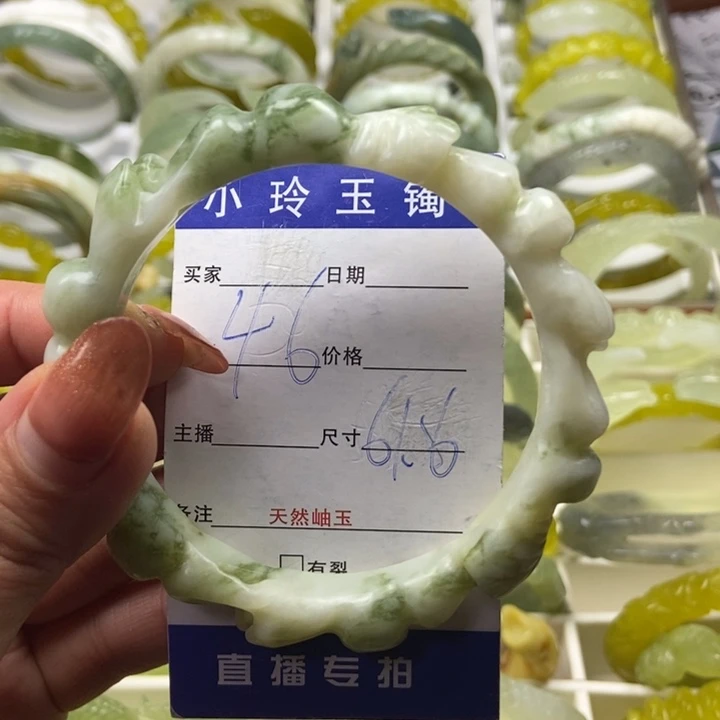 小玲玉镯
买家 日期
46 价格
主播 尺寸 61.8
备注 天然岫玉
有裂
直播专拍